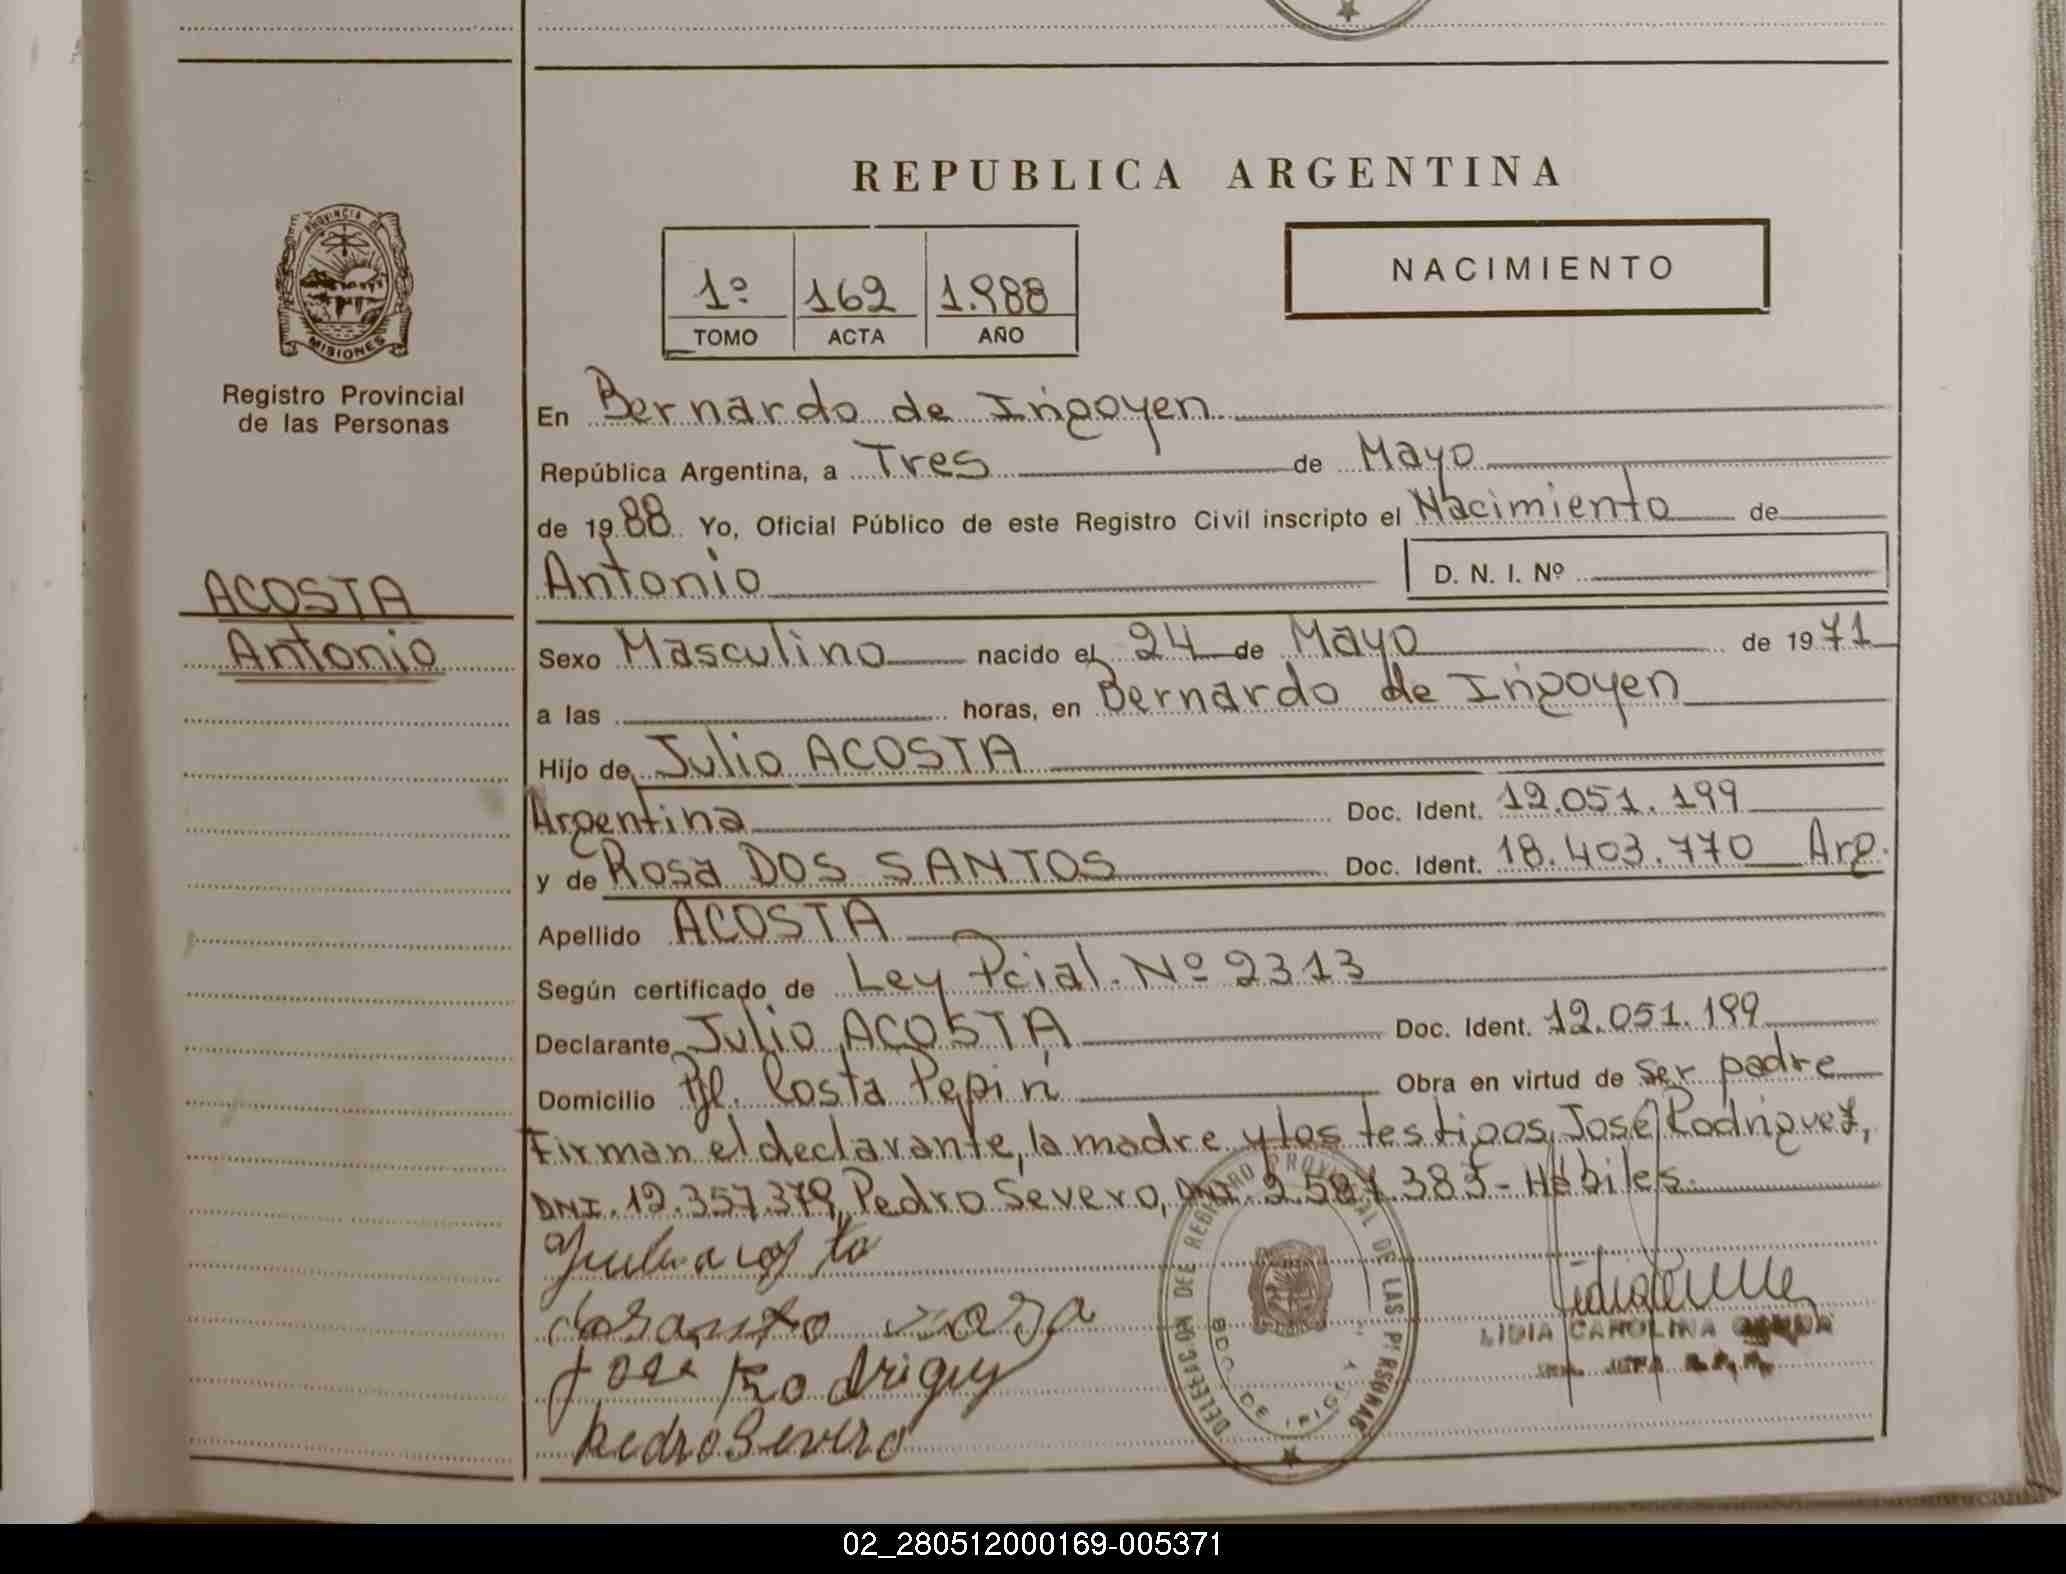 REPUBLICA ARGENTINA
PROVINCIA DE
MISIONES
Registro Provincial
de las Personas
1º 162 1.988
TOMO ACTA AÑO
NACIMIENTO
En Bernardo de Irigoyen
República Argentina, a Tres de Mayo
de 1988 Yo, Oficial Público de este Registro Civil inscripto el Nacimiento de
Antonio D. N. I. Nº
ACOSTA
Antonio
Sexo Masculino nacido el 24 de Mayo de 1971
a las horas, en Bernardo de Irigoyen
Hijo de Julio ACOSTA
Argentina Doc. Ident. 12.051.199
y de Rosa DOS SANTOS Doc. Ident. 18.403.770 Arg.
Apellido ACOSTA
Según certificado de Ley Pcial. Nº 2313
Declarante Julio ACOSTA Doc. Ident. 12.051.199
Domicilio Pje. Costa Pepirí Obra en virtud de ser padre
Firman el declarante, la madre y los testigos, José Rodríguez,
DNI. 12.357.379, Pedro Severo, DNI. 2.587.383 - Hábiles.
DELEGACION DEL REGISTRO PROVINCIAL DE LAS PERSONAS
BDO. DE IRIGOY
Jose Rodriguez
Pedro Severo
LIDIA CAROLINA
02_280512000169-005371